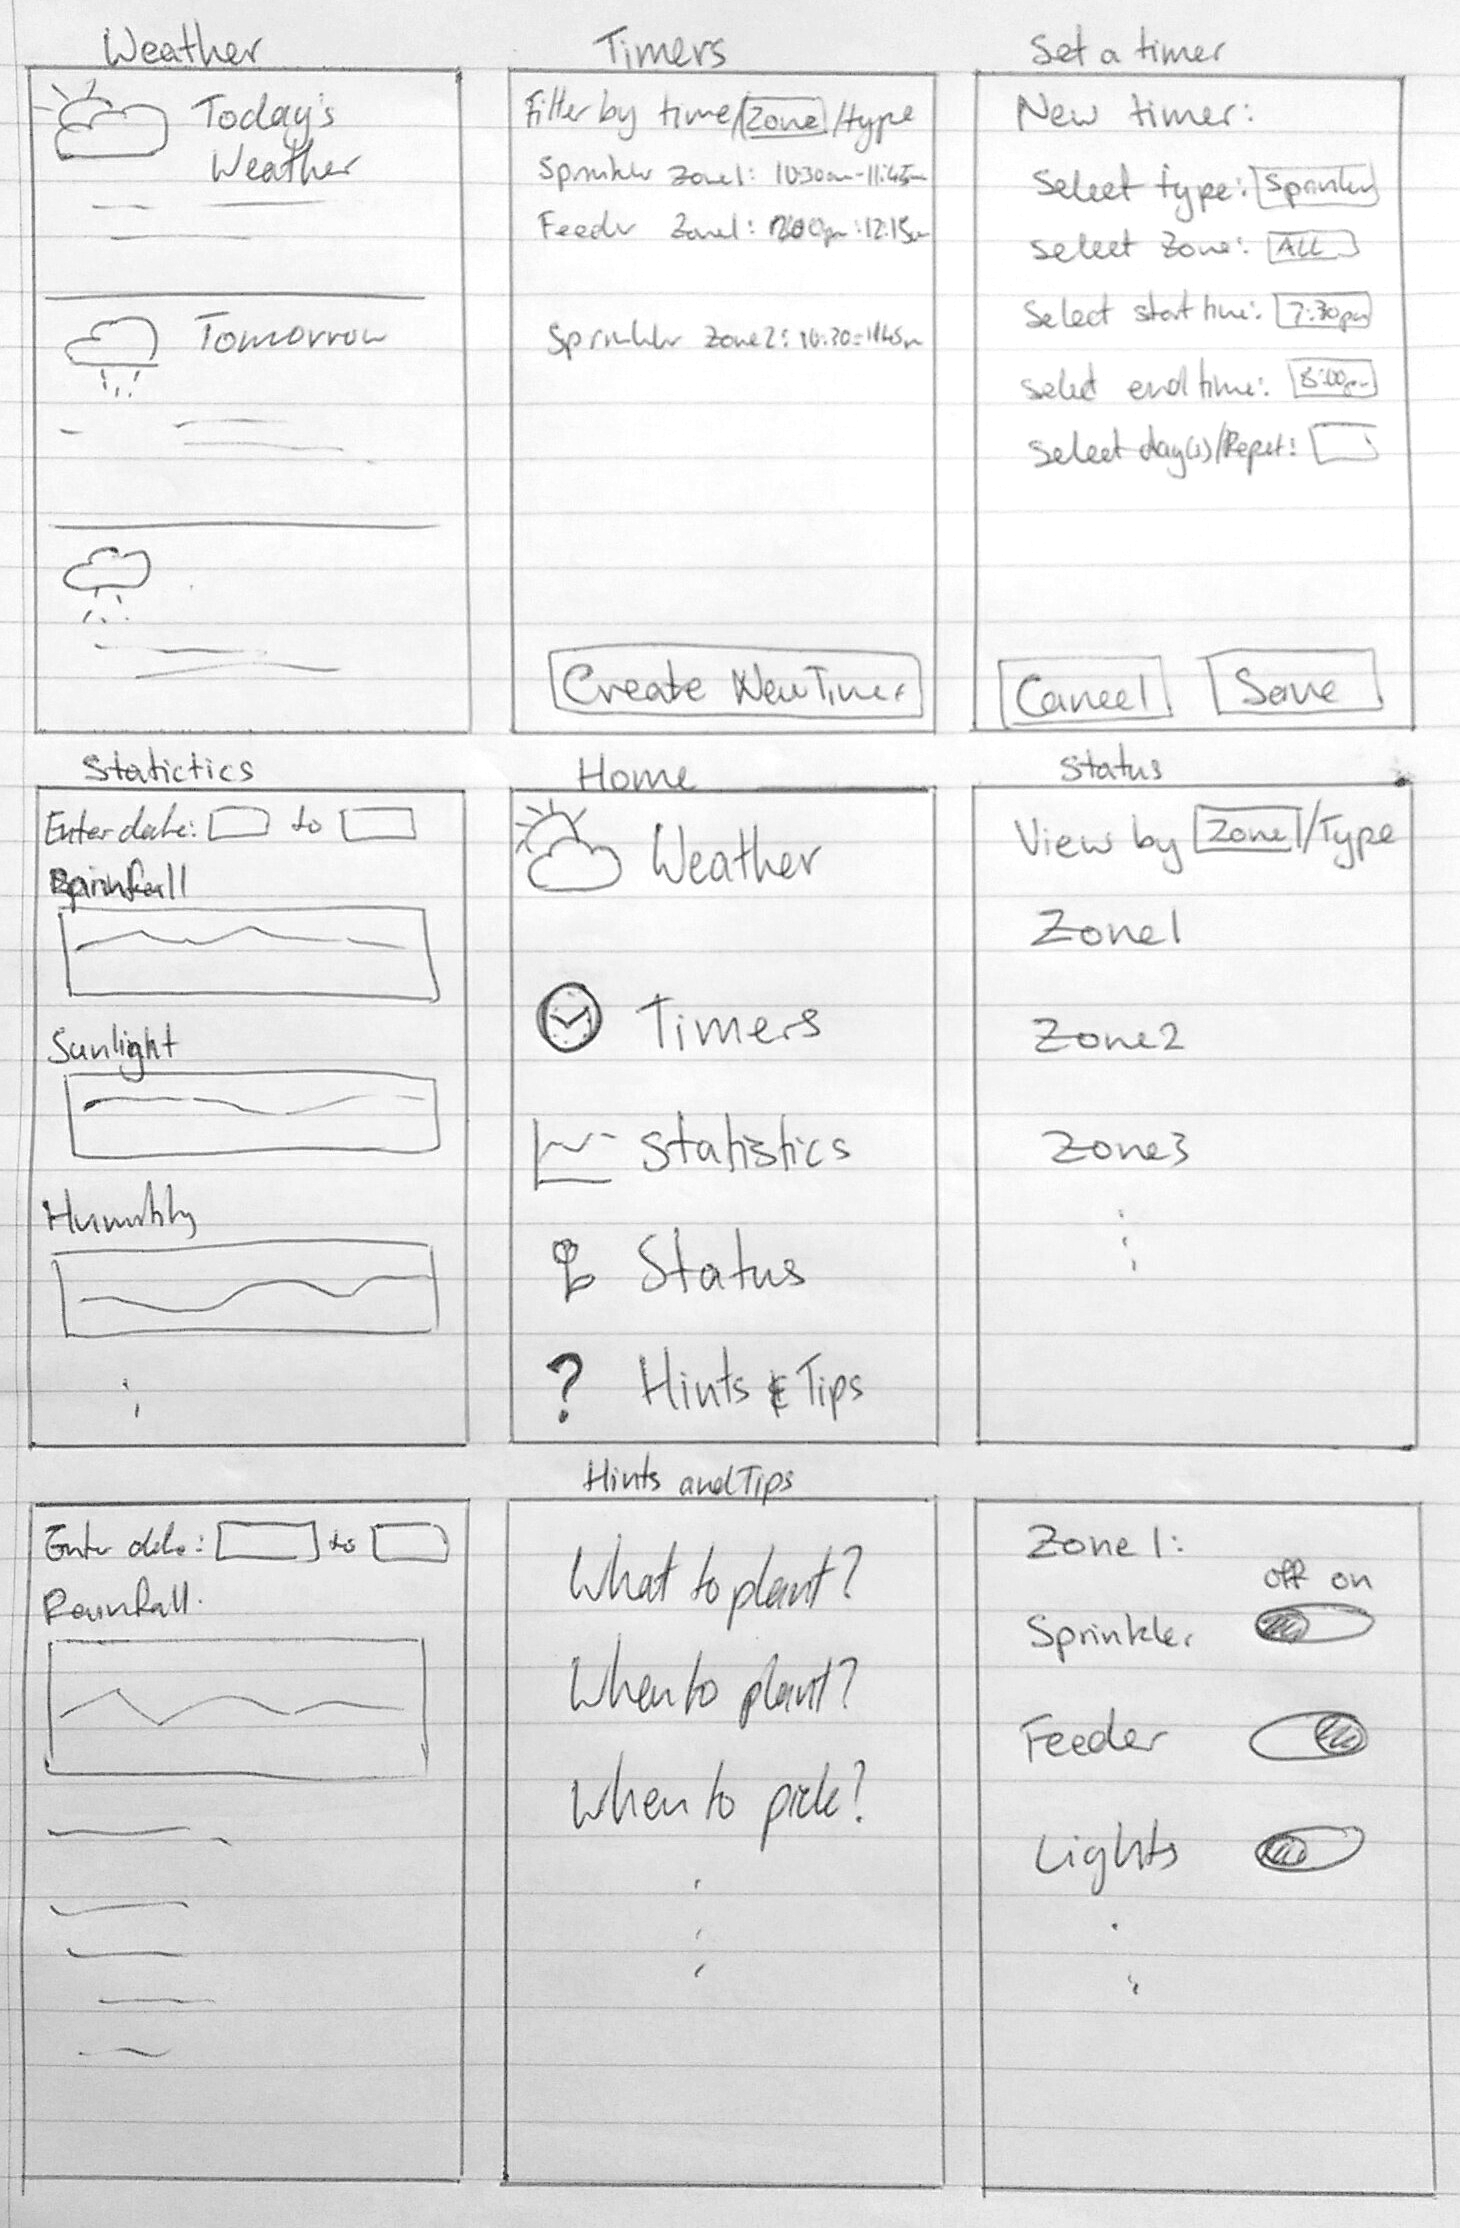 Weather
Today's
Weather
Tomorrow
Timers
Filter by time/Zone/type
Sprinkler Zone1: 10:30am-11:45am
Feeder Zone1: :12:15
Sprinkler Zone2: 10:30-1145
Create New Timer
Set a timer
New timer:
Select type: Sprinkler
Select Zone: ALL
Select start time: 7:30pm
Select end time: 8:00pm
Select day(s)/Repet:
Cancel
Save
Statictics
Enter date: to
Rainfall
Sunlight
Humidity
Home
Weather
Timers
Statistics
Status
? Hints & Tips
Status
View by Zone/Type
Zone1
Zone2
Zone3
Enter date: to
Rainfall
Hints and Tips
What to plant?
When to plant?
When to pick?
Zone 1:
off on
Sprinkler
Feeder
Lights